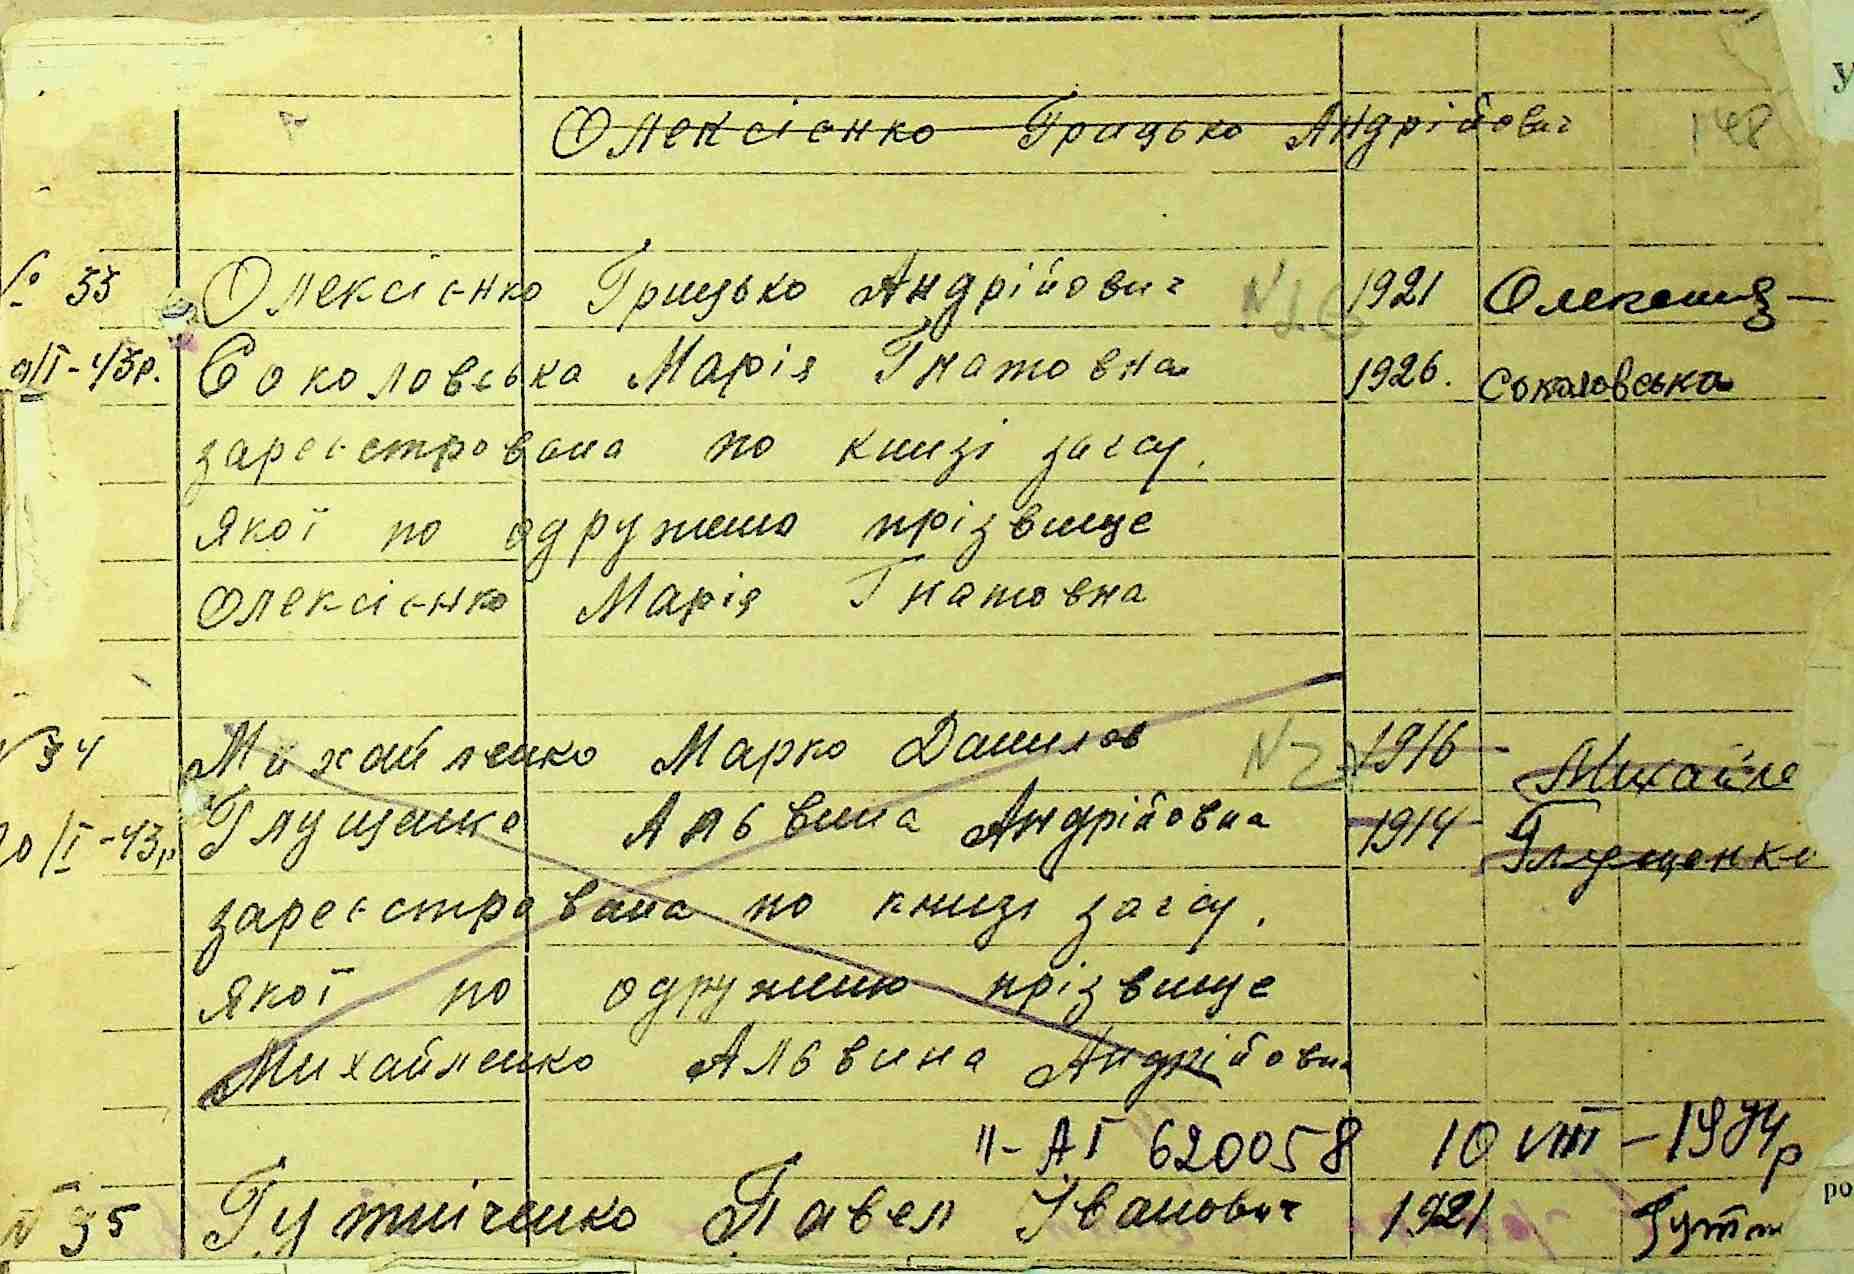 Олексієнко Грицько Андрійович 148
№ 33 Олексієнко Грицько Андрійович 1921 Олексієнко
9/I-43р. Соколовська Марія Гнатовна 1926. Соколовська
зареєстрована по книзі загсу.
якої по одруженю прізвище
Олексієнко Марія Гнатовна
№ 34 Михайленко Марко Данилов 1916 Михайле
10/I-43р Глущенко Альвина Андрійовна 1914 Глущенко
зареєстрована по книзі загсу.
якої по одруженю прізвище
Михайленко Альвина Андрійовна
II-АГ 620058 10 VIII-1974р
№ 35 Гутніченко Павел Іванович 1921 Гутн